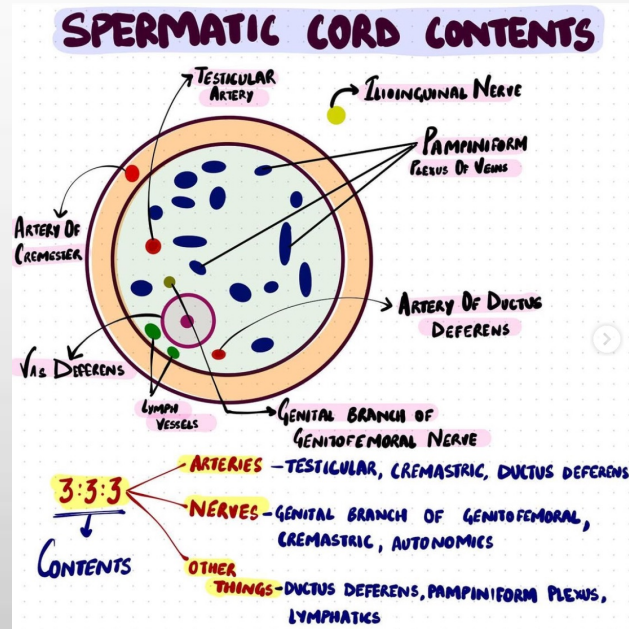 SPERMATIC CORD CONTENTS
TESTICULAR
ARTERY
ILIOINGUINAL NERVE
PAMPINIFORM
PLEXUS OF VEINS
ARTERY OF
CREMESTER
ARTERY OF DUCTUS
DEFERENS
VAS DEFERENS
LYMPH
VESSELS
GENITAL BRANCH OF
GENITOFEMORAL NERVE
3:3:3
CONTENTS
ARTERIES - TESTICULAR, CREMASTRIC, DUCTUS DEFERENS
NERVES - GENITAL BRANCH OF GENITOFEMORAL,
CREMASTRIC, AUTONOMICS
OTHER
THINGS - DUCTUS DEFERENS, PAMPINIFORM PLEXUS,
LYMPHATICS